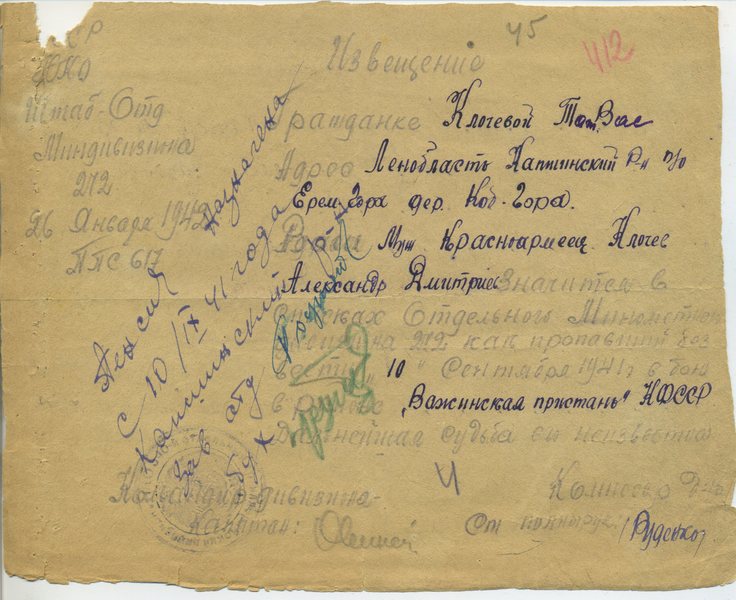 45
412
НКО
Штаб-Отд
Миндивизиона
212
26 Января 1942
ППС 617
Извещение
Гражданке Клочевой Тат. Вас
Адрес Ленобласть Капшинский р-н п/о
Ерем-Гора дер. Коб-Гора.
Муж Красноармеец Клочев
Александр Дмитриев Значится в
списках Отдельного Минометн
212 как пропавший без
вести „10" Сентября 1941 г в бою
в районе „Важинская пристань" КФССР
Дальнейшая судьба его неизвестна
Командир дивизиона-
Капитан:
Комиссар
Ст политрук: /Руденко/
Ч
Пенсия назначена
с 10/IX 41 года
Капшинский
Зав отд
бух